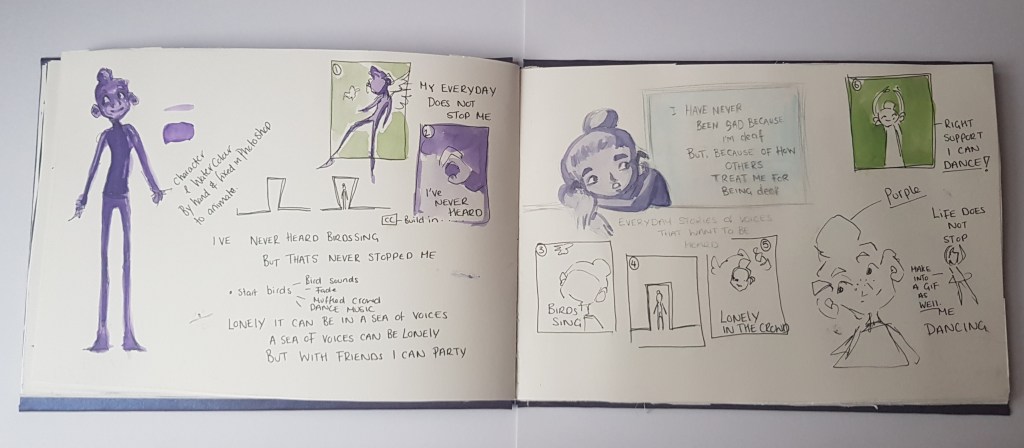 Character
& WaterColour
By hand & fixed in Photoshop
to animate.
①
MY EVERYDAY
DOES NOT
STOP ME
②
I've
NEVER
HEARD
CC - Build in..
I'VE NEVER HEARD BIRDSSING
BUT THATS NEVER STOPPED ME
• Start birds
Bird sounds
Fade
Muffled crowd
DANCE MUSIC
LONELY IT CAN BE IN A SEA OF VOICES
A SEA OF VOICES CAN BE LONELY
BUT WITH FRIENDS I CAN PARTY
I HAVE NEVER
BEEN SAD BECAUSE
I'm deaf
BUT, BECAUSE OF HOW
OTHERS
TREAT ME FOR
BEING deaf
EVERYDAY STORIES OF VOICES
THAT WANT TO BE
HEARD
③
BIRDS
SING
④
⑤
LONELY
IN THE CROWD
⑥
RIGHT
SUPPORT
I CAN
DANCE!
Purple
LIFE DOES
NOT
STOP
MAKE
INTO
A GIF
AS
WELL.
ME
DANCING